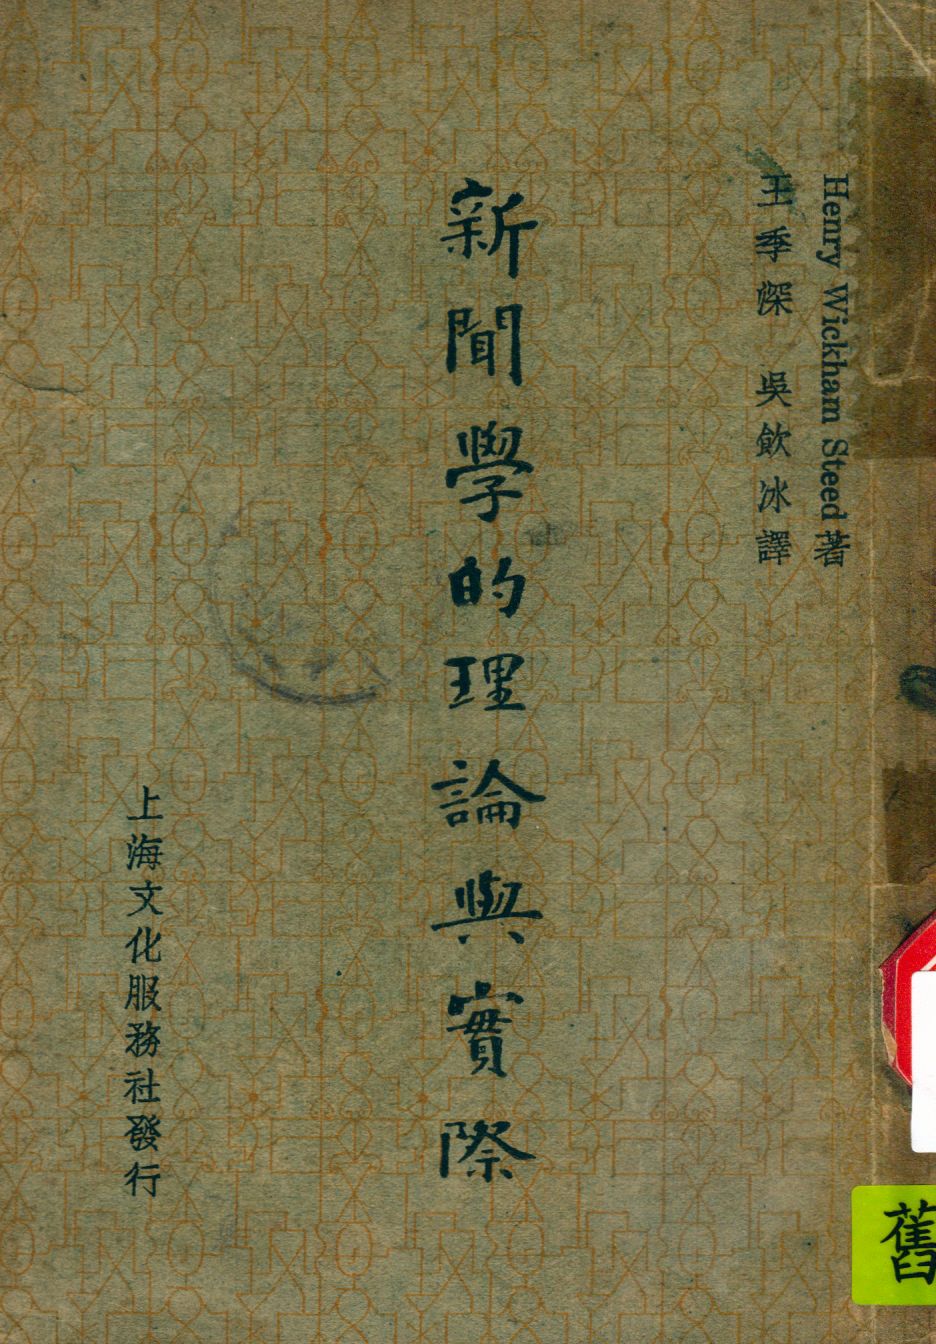 Henry Wickham Steed 著
王季深 吳飲冰 譯
新聞學的理論與實際
上海文化服務社發行
舊